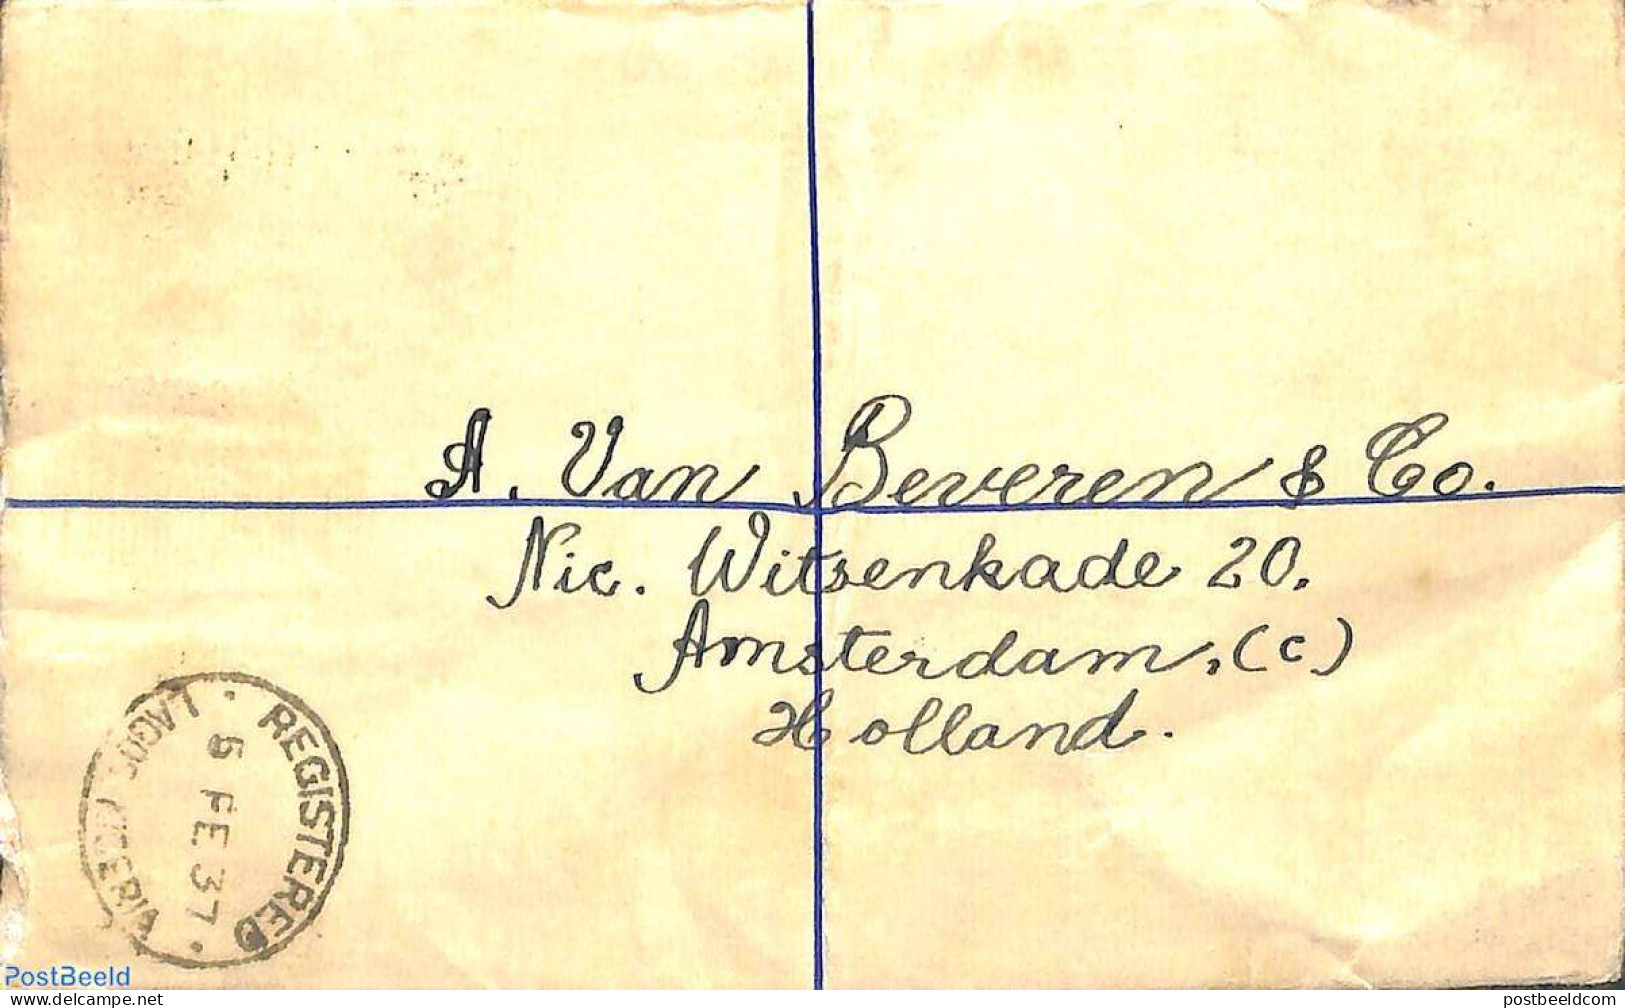 A. Van Beveren & Co.
Nic. Witsenkade 20.
Amsterdam. (C)
Holland.
REGISTERED
LAGOS NIGERIA
5 FE 37
PostBeeld
www.postbeeld.com
postbeeldcom